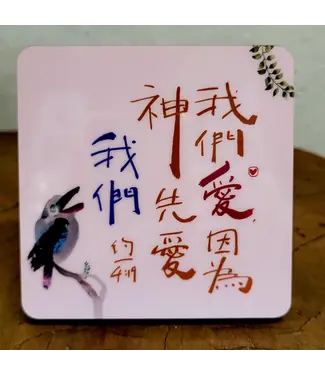 我們愛,因為
神先愛
我們
約一4:19